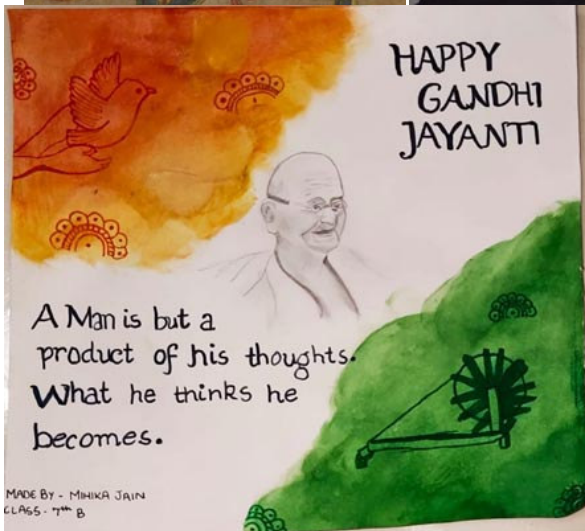 HAPPY
GANDHI
JAYANTI
A Man is but a
product of his thoughts.
What he thinks he
becomes.
MADE BY - MIHIKA JAIN
CLASS - 7th B